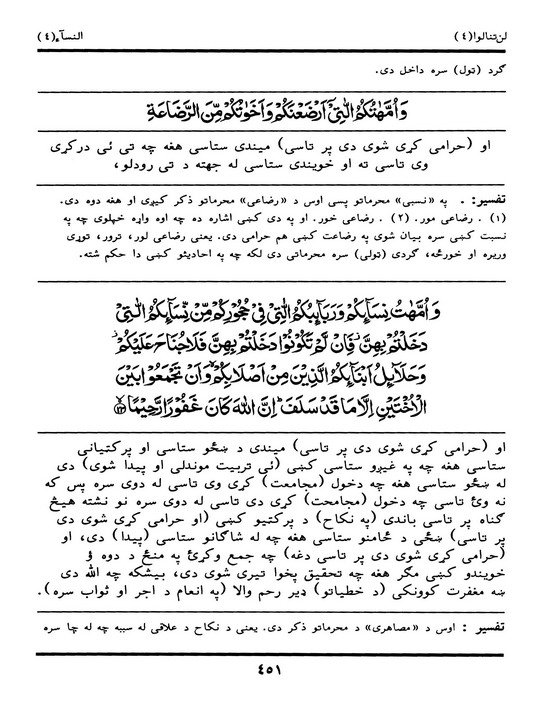 لن‌تنالوا(٤)
النسآء(٤)
ګرد (ټول) سره داخل دی.
وَاُمَّهٰتُكُمُ الّٰتِيْٓ اَرْضَعْنَكُمْ وَاَخَوٰتُكُمْ مِّنَ الرَّضَاعَةِ
او (حرامی کړی شوی دی پر تاسی) میندی ستاسی هغه چه تی ئی درکړی
وی تاسی ته او خویندی ستاسی له جهته د تی رودلو،
تفسیر: . په «نسبی» محرماتو پسی اوس د «رضاعی» محرماتو ذکر کیږی او هغه دوه دی.
(۱) . رضاعی مور. (۲) . رضاعی خور. او په دی کښی اشاره ده چه اوه واړه خپلوی چه په
نسبت کښی سره بیان شوی په رضاعت کښی هم حرامی دی. یعنی رضاعی لور، ترور، توړی
وریره او خورځه، ګردی (ټولی) سره محرماتی دی لکه چه په احادیثو کښی دا حکم شته.
وَاُمَّهٰتُ نِسَآىِٕكُمْ وَرَبَآىِٕبُكُمُ الّٰتِيْ فِيْ حُجُوْرِكُمْ مِّنْ نِّسَآىِٕكُمُ الّٰتِيْ
دَخَلْتُمْ بِهِنَّ فَاِنْ لَّمْ تَكُوْنُوْا دَخَلْتُمْ بِهِنَّ فَلَا جُنَاحَ عَلَيْكُمْ
وَحَلَآىِٕلُ اَبْنَآىِٕكُمُ الَّذِيْنَ مِنْ اَصْلَابِكُمْ وَاَنْ تَجْمَعُوْا بَيْنَ
الْاُخْتَيْنِ اِلَّا مَا قَدْ سَلَفَ اِنَّ اللّٰهَ كَانَ غَفُوْرًا رَّحِيْمًا ﴿٢٣﴾
او (حرامی کړی شوی دی پر تاسی) میندی د ښځو ستاسی او پرکټیانی
ستاسی هغه چه په غیږو ستاسی کښی (ئی تربیت موندلی او پیدا شوی) دی
له ښځو ستاسی هغه چه دخول (مجامعت) کړی وی تاسی له دوی سره پس که
نه وئ تاسی چه دخول (مجامحت) کړی دی تاسی له دوی سره نو نشته هیڅ
ګناه پر تاسی باندی (په نکاح) د پرکټیو کښی (او حرامی کړی شوی دی
پر تاسی) ښځی د ځامنو ستاسی هغه چه له شاګانو ستاسی (پیدا) دی، او
(حرامی کړی شوی دی پر تاسی دغه) چه جمع وکړئ په منځ د دوه ؤ
خویندو کښی مګر هغه چه تحقیق پخوا تیری شوی دی، بیشکه چه الله دی
ښه مغفرت کوونکی (د خطیاتو) ډیر رحم والا (په انعام د اجر او ثواب سره).
تفسیر : اوس د «مصاهری» د محرماتو ذکر دی. یعنی د نکاح د علاقی له سببه چه له چا سره
٤٥١